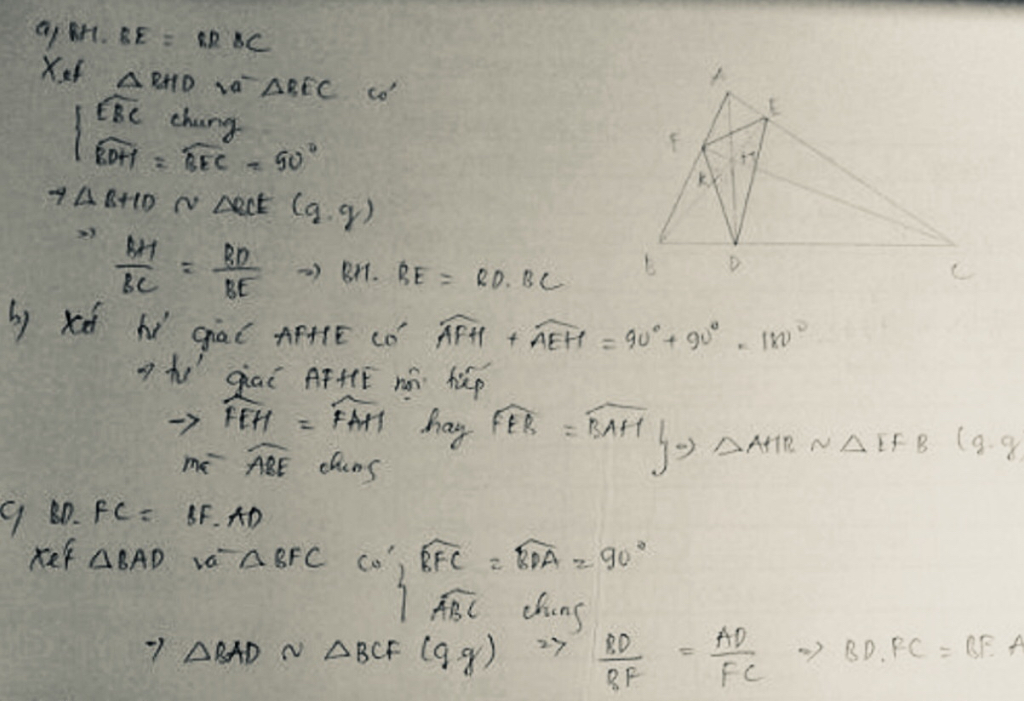 a) BH. BE = BD. BC
Xét △BHD và △BEC có
EBC chung
BDH = BEC = 90°
→ △BHD ~ △BCE (g.g)
=> BH/BC = BD/BE => BH. BE = BD. BC
b) Xét tứ giác AFHE có AFH + AEH = 90° + 90° = 180°
→ tứ giác AFHE nội tiếp
-> FEH = FAH hay FEB = BAH
mà ABE chung
=> △AHB ~ △EFB (g.g)
c) BD. FC = BF. AD
Xét △BAD và △BFC có BFC = BDA = 90°
ABC chung
→ △BAD ~ △BCF (g.g) => BD/BF = AD/FC => BD. FC = BF. A
A
E
F
H
K
B
D
C